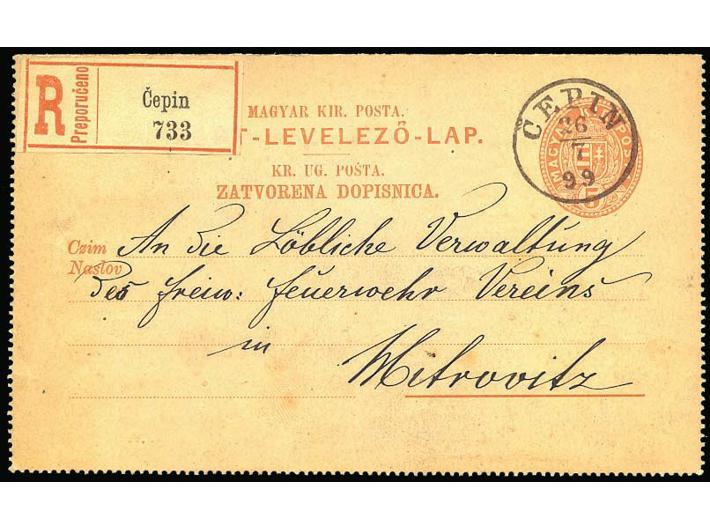 R
Preporučeno
Čepin
733
MAGYAR KIR. POSTA.
T-LEVELEZŐ-LAP.
KR. UG. POŠTA.
ZATVORENA DOPISNICA.
ČEPIN
26
7
99
MAGYAR POS
5
Czim
Naslov
An die Löbliche Verwaltung
des freiw: Feuerwehr Vereins
in
Mitrovitz